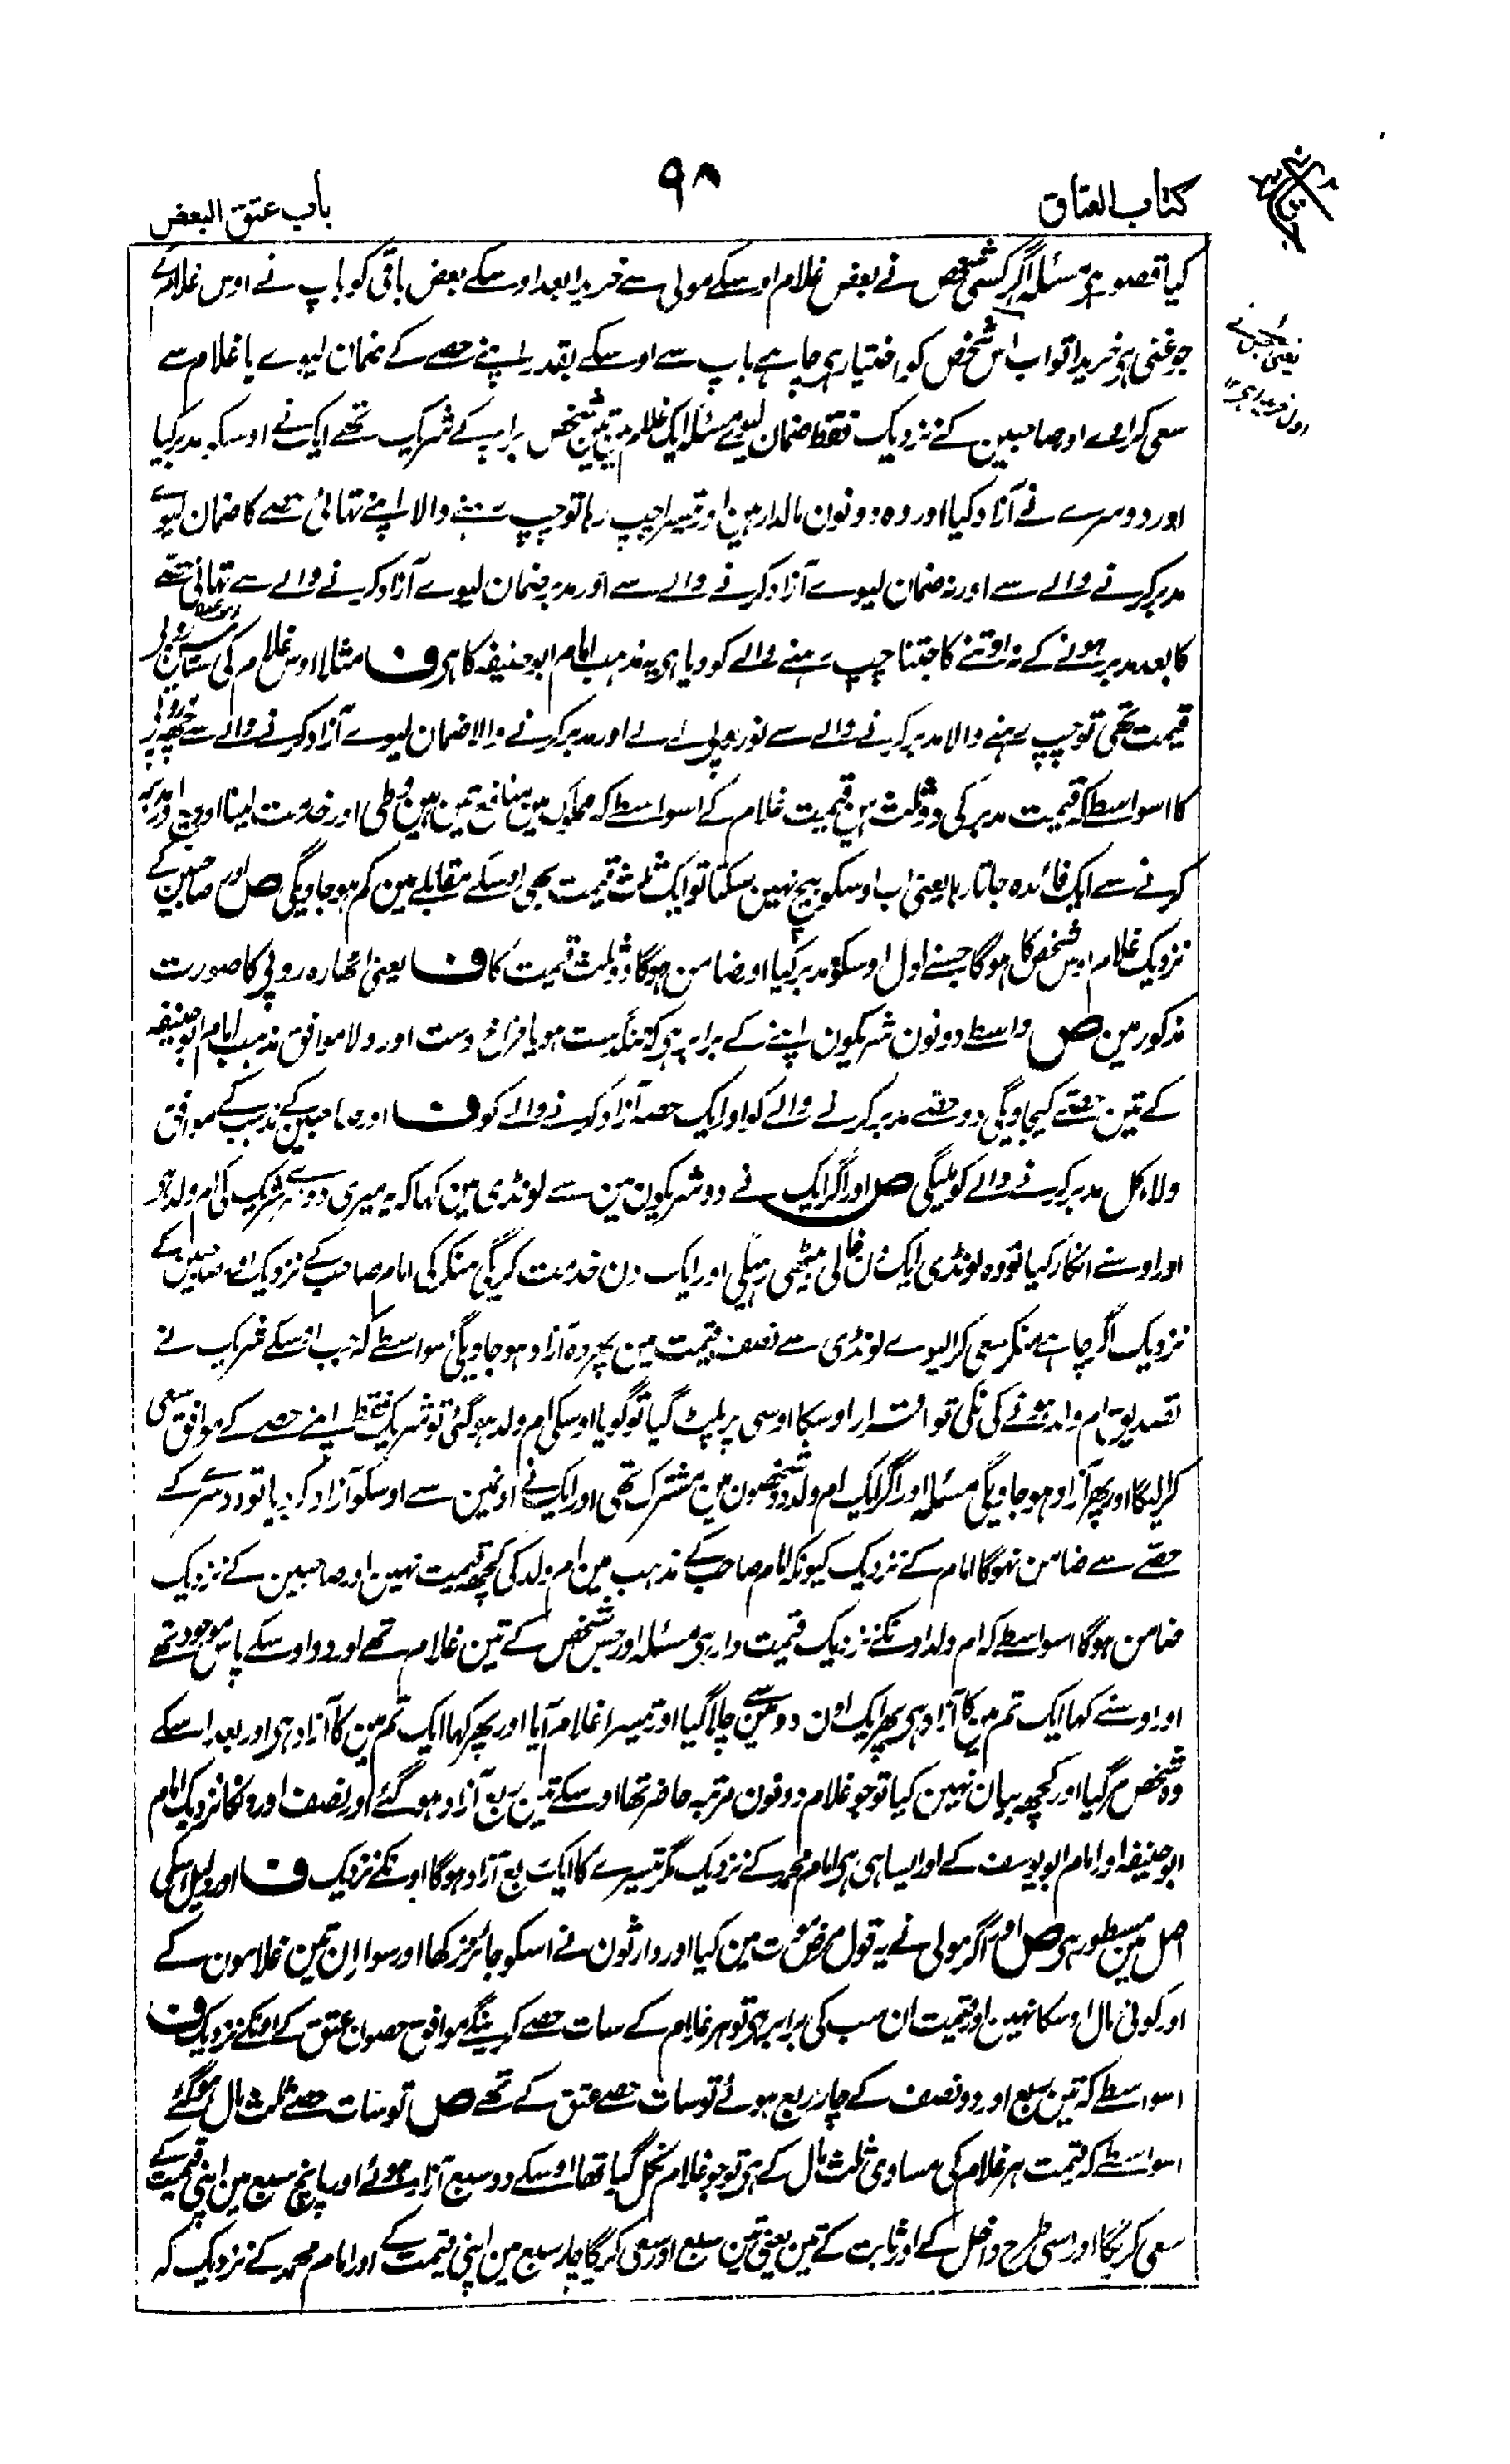 کتاب العتاق
۹۸
باب عتق البعض
کیا قصور ہی مسئلہ اگر کسی شخص نے بعض غلام اوسکے مولی سے خریدا بعد اوسکے بعض باقی کو باپ نے اوس غلام کے
جو غنی ہی خریدا تو اب اس شخص کو اختیار ہی چاہے باپ سے اوسکے بقدر اپنے حصے کے ضمان لیوے یا غلام سے
سعی کراوے اور صاحبین کے نزدیک فقط ضمان لیوے مسئلہ ایک غلام مین تین شخص برابر کے شریک تھے ایک نے اوسکو مدبر کیا
اور دوسرے نے آزاد کیا اور وہ دونون مالدار ہین اور تیسرا چپ رہا تو چپ رہنے والا اپنے تہائی حصے کا ضمان لیوے
مدبر کرنے والے سے اور نہ ضمان لیوے آزاد کرنے والے سے اور مدبر ضمان لیوے آزاد کرنے والے سے تہائی حصے
کا بعد مدبر ہونے کے نہ اوتنے کا جتنا چپ رہنے والے کو دیا ہی یہ مذہب امام ابو حنیفہ کا ہی ف مثلا اوس غلام کی ستائیس روپی
قیمت تھی تو چپ رہنے والا مدبر کرنے والے سے نو روپی لے لے اور مدبر کرنے والا ضمان لیوے آزاد کرنے والے سے چھہ روپی
کا اسواسطے کہ قیمت مدبر کی دو ثلث ہی قیمت غلام کے اسواسطے کہ مملوک مین منافع تین ہین وطی اور خدمت لینا اور بیع اور مدبر
کرنے سے ایک فائدہ جاتا رہا یعنی اب اوسکو بیچ نہین سکتا تو ایک ثلث قیمت بھی اوسکے مقابلے مین کم ہو جاویگی ص اور صاحبین کے
نزدیک غلام اوس شخص کا ہوگا جسنے اول اوسکو مدبر کیا اور ضامن ہوگا دو ثلث قیمت کا ف یعنی اٹھارہ روپی کا صورت
مذکور مین ص واسطے دونون شریکون اپنے کے برابر ہی کہ تنگدست ہو یا فراخ دست اور ولا موافق مذہب امام ابو حنیفہ
کے تین حصے کیجاویگی دو حصے مدبر کرنے والے کو اور ایک حصہ آزاد کرنے والے کو ف اور صاحبین کے مذہب کے موافق
ولاء کل مدبر کرنے والے کو ملیگی ص اور اگر ایک نے دو شریکون مین سے لونڈی مین کہا کہ یہ میری دوسرے شریک کی ام ولد ہی
اور اوسنے انکار کیا تو وہ لونڈی ایک دن خالی بیٹھی رہیگی اور ایک دن خدمت کریگی منکر کی امام صاحب کے نزدیک اور صاحبین کے
نزدیک اگر چاہے منکر سعی کرا لیوے لونڈی سے نصف قیمت مین پھر وہ آزاد ہو جاویگی اسواسطے کہ جب اوسکے شریک نے
تصدیق ام ولد ہونے کی نکی تو اقرار اوسکا اوسی پر پلٹ گیا تو گویا اوسکی ام ولد ہو گئی تو شریک فقط اپنے حصے کے موافق سعی
کرا لیگا اور پھر آزاد ہو جاویگی مسئلہ اور اگر ایک ام ولد دو شخصون مین مشترک تھی اور ایک نے اونمین سے اوسکو آزاد کر دیا تو دوسرے کے
حصے سے ضامن نہوگا امام کے نزدیک کیونکہ امام صاحب کے مذہب مین ام ولد کی کچھ قیمت نہین اور صاحبین کے نزدیک
ضامن ہوگا اسواسطے کہ ام ولد اونکے نزدیک قیمت دار ہی مسئلہ اور جس شخص کے تین غلام تھے اور دو اوسکے پاس موجود تھے
اور اوسنے کہا ایک تم مین کا آزاد ہی پھر ایک اون دو مین سے چلا گیا اور تیسرا غلام آیا اور پھر کہا ایک تم مین کا آزاد ہی اور بعد اسکے
وہ شخص مر گیا اور کچھ بیان نہین کیا تو جو غلام دونون مرتبہ حاضر تھا اوسکے تین ربع آزاد ہو گئے اور نصف اورونکا نزدیک امام
ابو حنیفہ اور امام ابو یوسف کے اور ایسا ہی ہی امام محمد کے نزدیک مگر تیسرے کا ایک ربع آزاد ہوگا اونکے نزدیک ف اور دلیل اسکی
اصل مین مسطور ہی ص اور اگر مولی نے یہ قول مرض موت مین کیا اور وارثون نے اسکو جائز نرکھا اور سوا ان تین غلامون کے
اور کوئی مال اوسکا نہین اور قیمت ان سب کی برابر ہی تو ہر غلام کے سات حصے کرینگے موافق حصوان عتق کے اونکے نزدیک ف
اسواسطے کہ تین ربع اور دو نصف کے چار ربع ہوئے تو سات حصے عتق کے تھے ص تو سات حصے ثلث مال ہو گئے
اسواسطے کہ قیمت ہر غلام کی مساوی ثلث مال کے ہی تو جو غلام نکل گیا تھا اوسکے دو سبع آزاد ہوئے اور پانچ سبع مین اپنی قیمت کے
سعی کریگا اور اسی طرح داخل کے اور ثابت کے تین یعنی تین سبع اور سعی کریگا چار سبع مین اپنی قیمت کے اور امام محمد کے نزدیک کہ